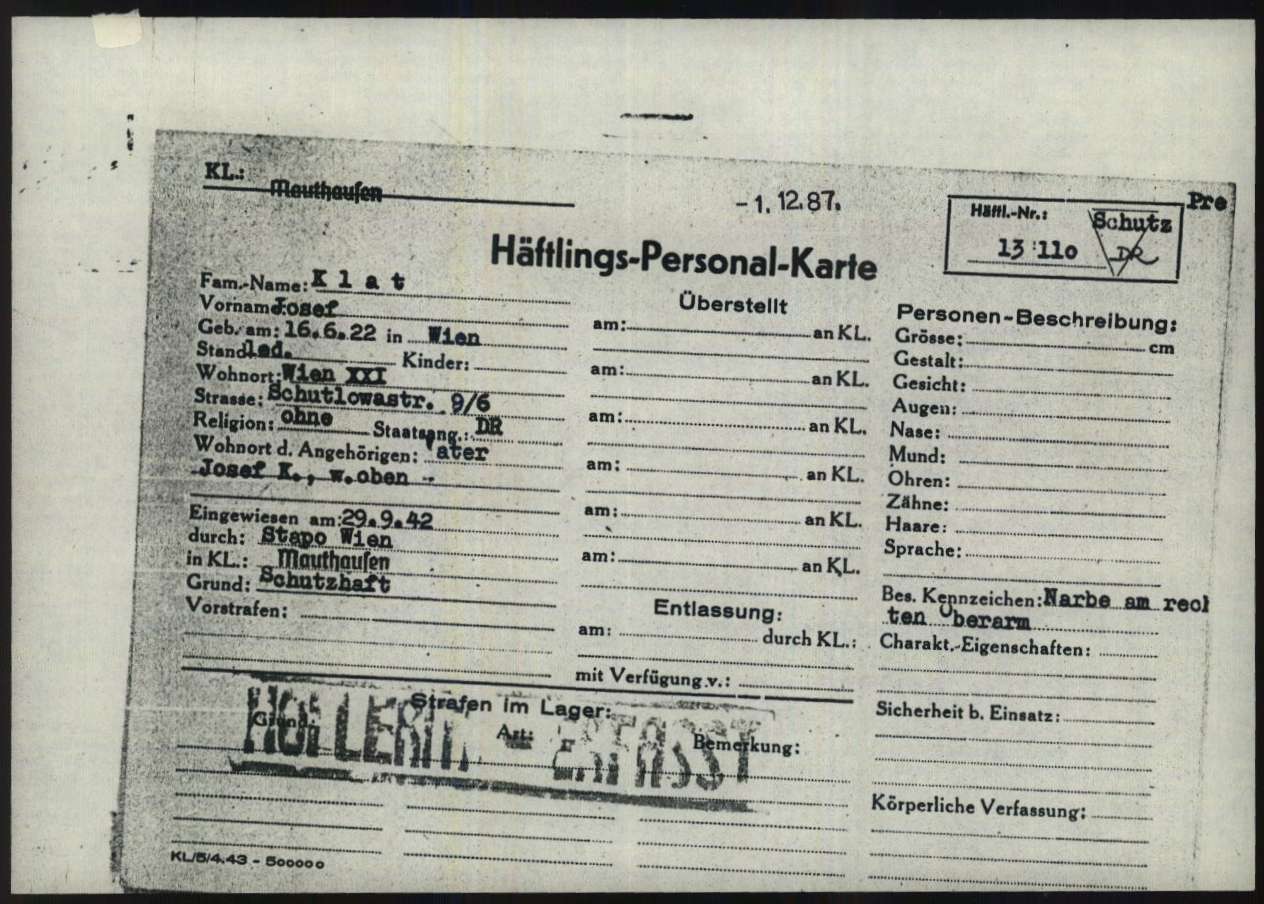 KL.: Mauthausen
- 1. 12. 87.
Pre
Häftl.-Nr.:
13 110
Schutz
DR
Häftlings-Personal-Karte
Fam.-Name: K l a t
Vorname Josef
Geb. am: 16.6.22 in Wien
Stand led. Kinder:
Wohnort: Wien XXI
Strasse: Schutlowastr. 9/6
Religion: ohne Staatsang.: DR
Wohnort d. Angehörigen: Vater
Josef K., w.oben -
Eingewiesen am: 29.9.42
durch: Stapo Wien
in KL.: Mauthausen
Grund: Schutzhaft
Vorstrafen:
Überstellt
am: an KL.
am: an KL.
am: an KL.
am: an KL.
am: an KL.
am: an KL.
Entlassung:
am: durch KL.:
mit Verfügung v.:
Personen-Beschreibung:
Grösse: cm
Gestalt:
Gesicht:
Augen:
Nase:
Mund:
Ohren:
Zähne:
Haare:
Sprache:
Bes. Kennzeichen: Narbe am rech
ten Oberarm
Charakt.-Eigenschaften:
Sicherheit b. Einsatz:
Körperliche Verfassung:
Strafen im Lager:
Grund: Art: Bemerkung:
HOLLERITH - ERFASST
KL/5/4.43 - 500000